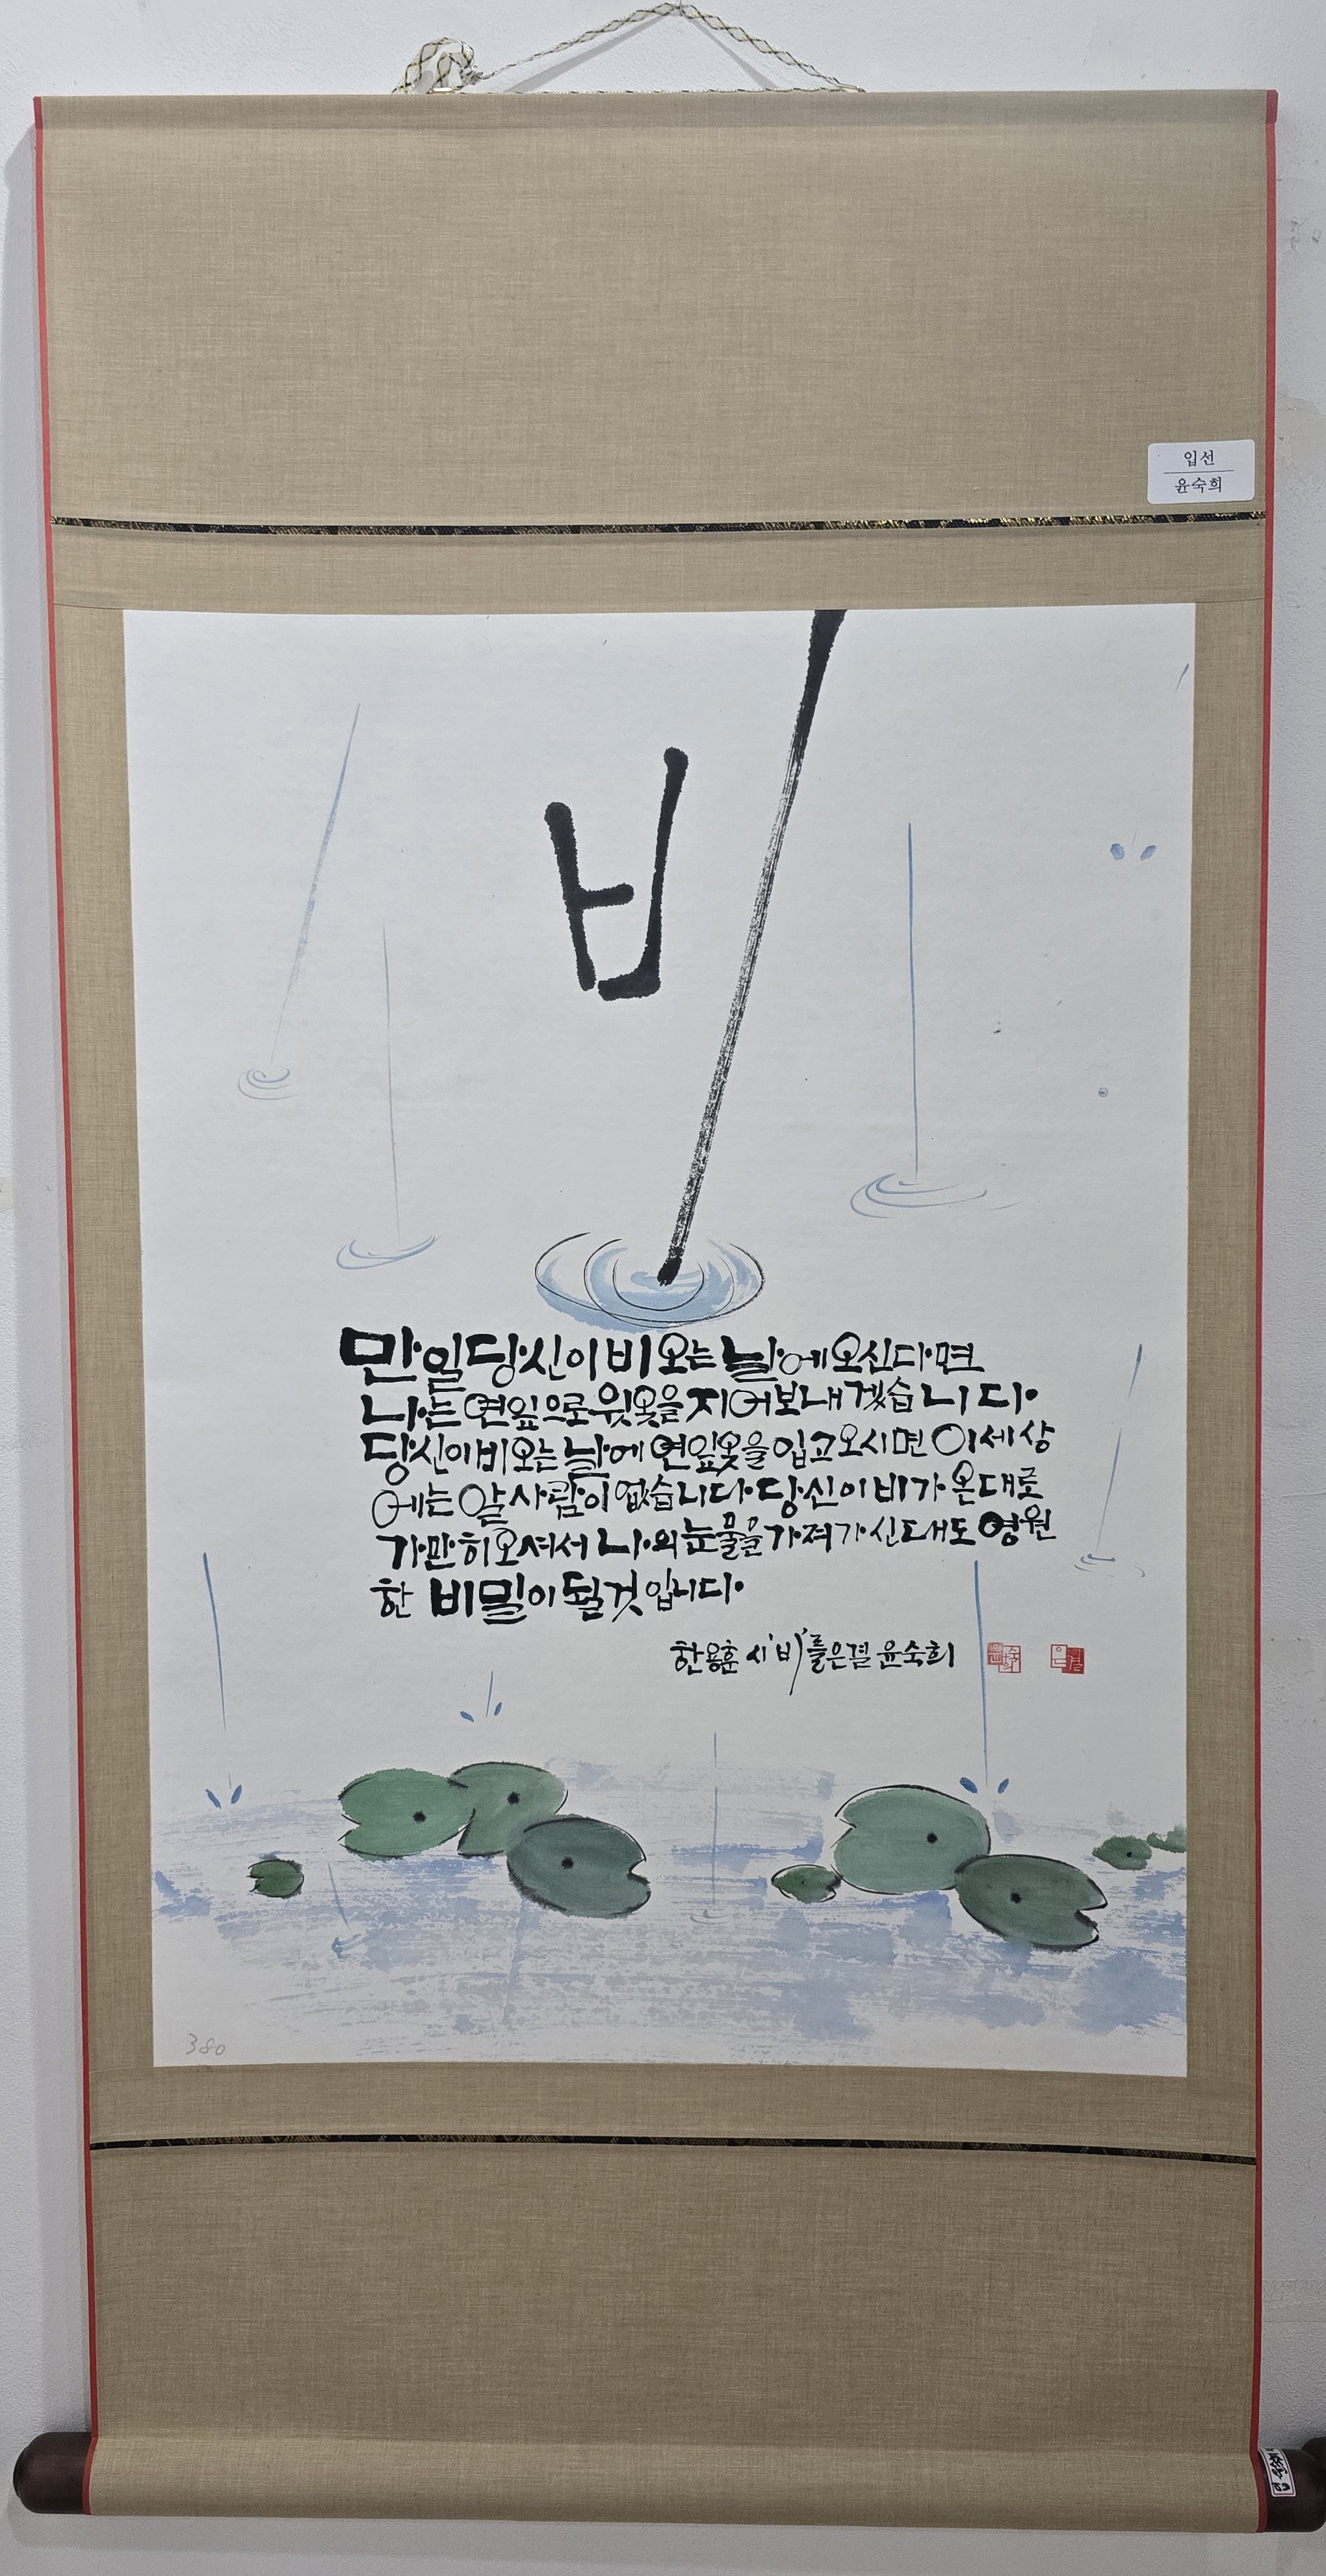 입선
윤숙희
비
만일당신이비오는날에오신다면
나는연잎으로윗옷을지어보내겠습니다
당신이비오는날에연잎옷을입고오시면이세상
에는알사람이없습니다당신이비가온대로
가만히오셔서나의눈물을가져가신대도영원
한 비밀이될것입니다
한용훈 시'비'를은결 윤숙희
380